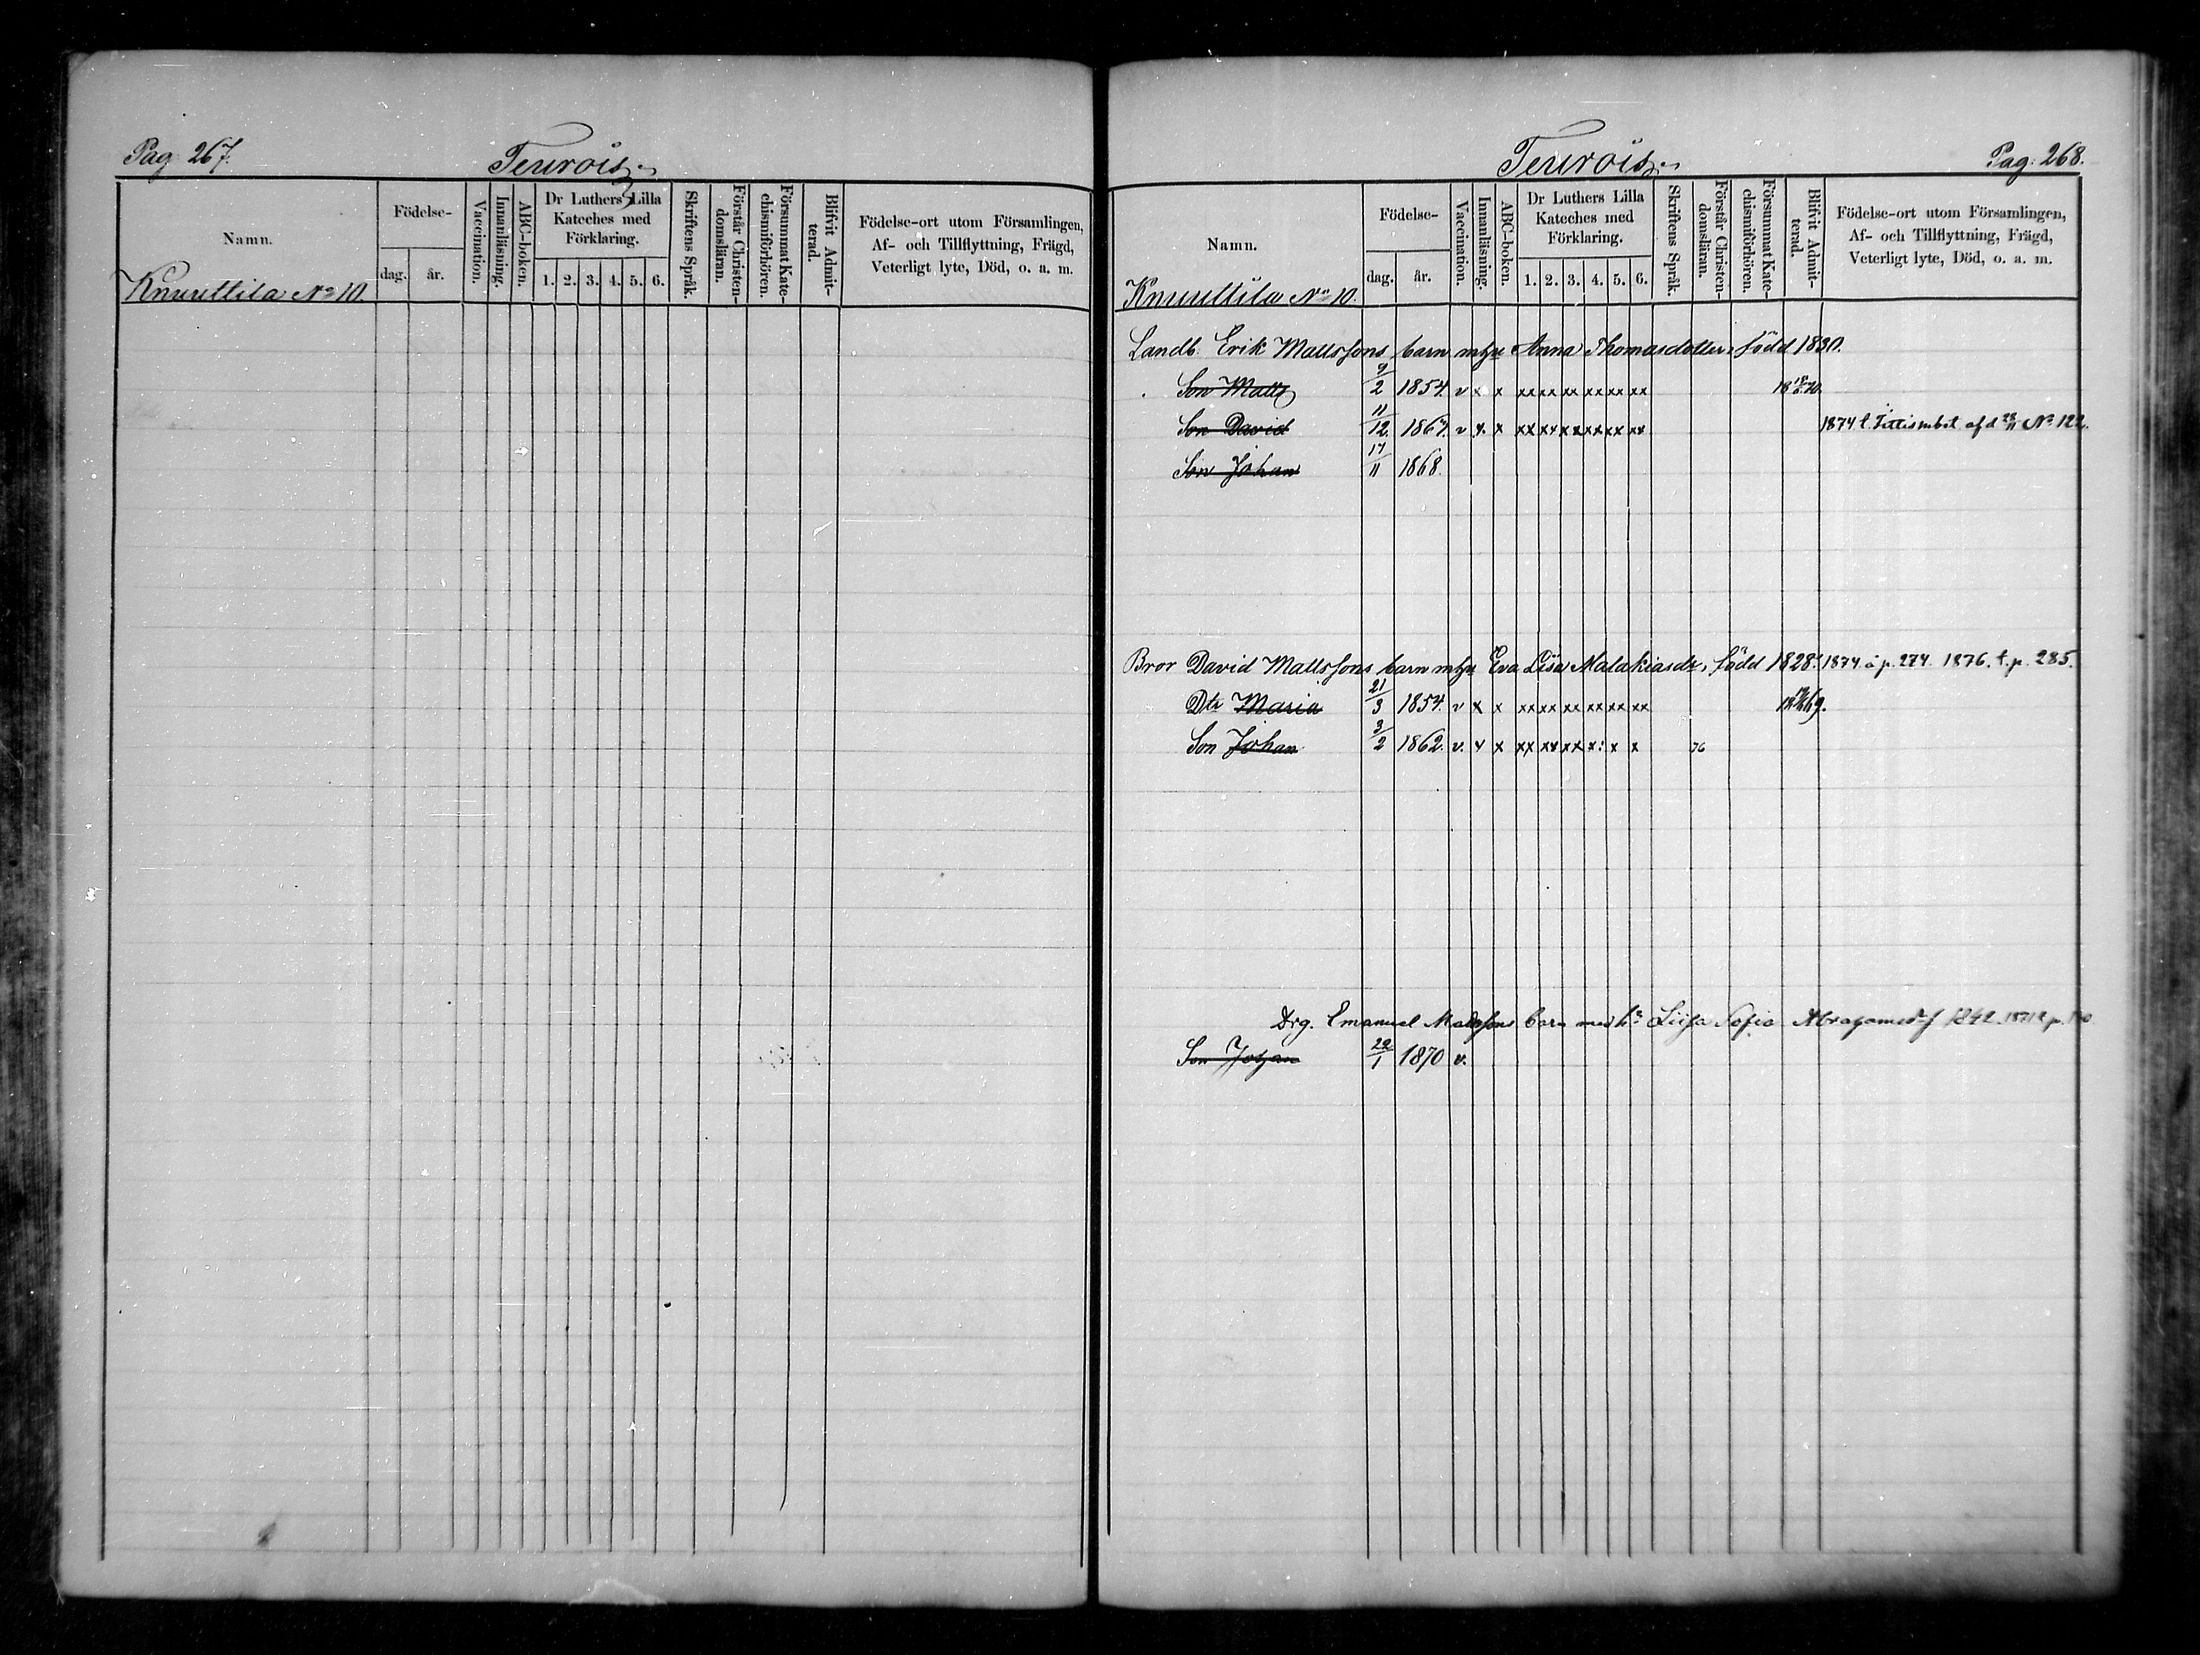 Pag. 267.
Teurois.
Namn.
Födelse-
dag.
år.
Vaccination.
Innanläsning.
ABC-boken.
Dr Luthers Lilla
Kateches med
Förklaring.
1. 2. 3. 4. 5. 6.
Skriftens Språk.
Förstår Christen-
domsläran.
Försummat Kate-
chismiförhören.
Blifvit Admit-
terad.
Födelse-ort utom Församlingen,
Af- och Tillflyttning, Frägd,
Veterligt lyte, Död, o. a. m.
Knuuttila No 10.
Teurois.
Pag. 268.
Namn.
Födelse-
dag.
år.
Vaccination.
Innanläsning.
ABC-boken.
Dr Luthers Lilla
Kateches med
Förklaring.
1. 2. 3. 4. 5. 6.
Skriftens Språk.
Förstår Christen-
domsläran.
Försummat Kate-
chismiförhören.
Blifvit Admit-
terad.
Födelse-ort utom Församlingen,
Af- och Tillflyttning, Frägd,
Veterligt lyte, Död, o. a. m.
Knuuttila No 10.
Landb. Erik Mattssons barn m hu Anna Thomasdotter, född 1830.
Son Matts 9/2 1854. v x x xx xx xx xx xx xx
Son David 11/12 1867. v x. x xx xx xx xx xx xx 1874 t. Tittismbst. afd No 122.
Son Johan 17/11 1868.
Bror David Mattssons barn m hu Eva Lisa Malakiasdr, född 1828. 1874 å p. 274. 1876. t. p. 285.
Dtr Maria 21/3 1854. v x x xx xx xx xx xx xx
Son Johan 3/2 1862. v. x x xx xx xx x: x x 76
Drg. Emanuel Mattssons barn med h. Liisa Sofia Abrahamsd f 1842.
Son Johan 22/1 1870 v.